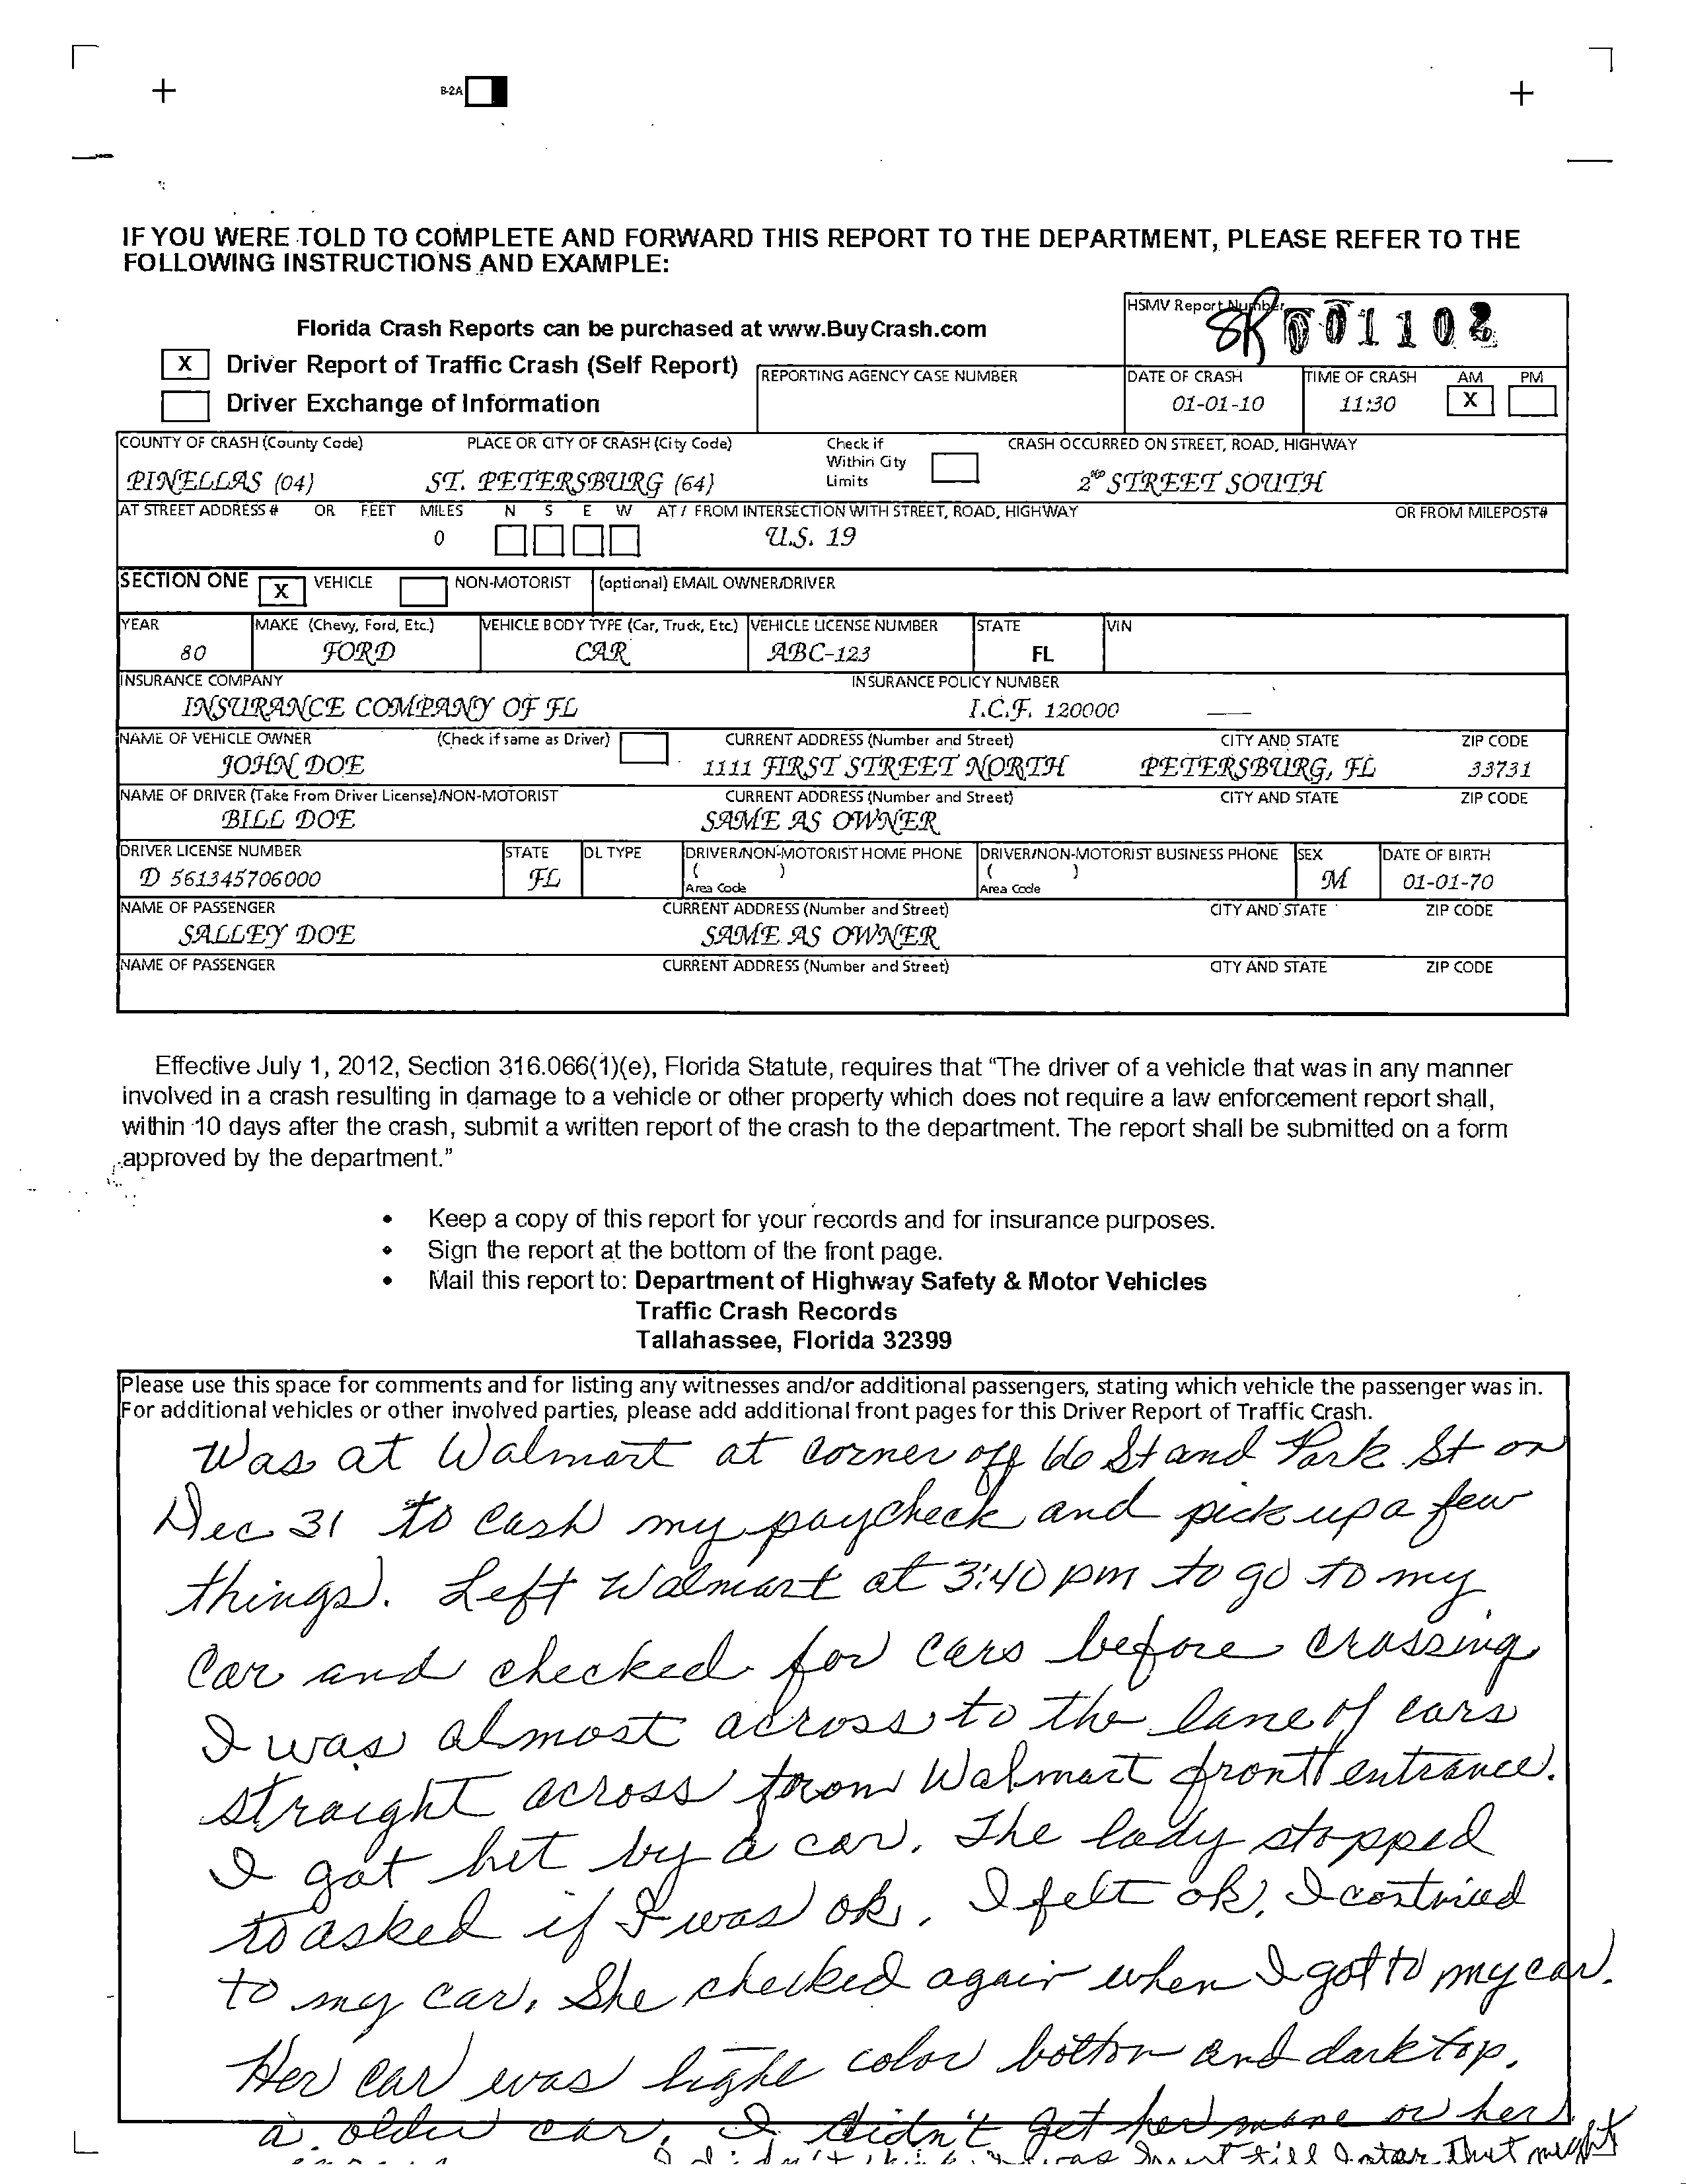 B-2A
IF YOU WERE TOLD TO COMPLETE AND FORWARD THIS REPORT TO THE DEPARTMENT, PLEASE REFER TO THE
FOLLOWING INSTRUCTIONS AND EXAMPLE:
HSMV Report Number
8K 001108
Florida Crash Reports can be purchased at www.BuyCrash.com
X Driver Report of Traffic Crash (Self Report)
Driver Exchange of Information
REPORTING AGENCY CASE NUMBER DATE OF CRASH TIME OF CRASH AM PM
01-01-10 11:30 X
COUNTY OF CRASH (County Code) PLACE OR CITY OF CRASH (City Code) Check if Within City Limits CRASH OCCURRED ON STREET, ROAD, HIGHWAY
PINELLAS (04) ST. PETERSBURG (64) 2ND STREET SOUTH
AT STREET ADDRESS # OR FEET MILES N S E W AT / FROM INTERSECTION WITH STREET, ROAD, HIGHWAY OR FROM MILEPOST#
0 U.S. 19
SECTION ONE X VEHICLE NON-MOTORIST (optional) EMAIL OWNER/DRIVER
YEAR MAKE (Chevy, Ford, Etc.) VEHICLE BODY TYPE (Car, Truck, Etc.) VEHICLE LICENSE NUMBER STATE VIN
80 FORD CAR ABC-123 FL
INSURANCE COMPANY INSURANCE POLICY NUMBER
INSURANCE COMPANY OF FL I.C.F. 120000
NAME OF VEHICLE OWNER (Check if same as Driver) CURRENT ADDRESS (Number and Street) CITY AND STATE ZIP CODE
JOHN DOE 1111 FIRST STREET NORTH PETERSBURG, FL 33731
NAME OF DRIVER (Take From Driver License)/NON-MOTORIST CURRENT ADDRESS (Number and Street) CITY AND STATE ZIP CODE
BILL DOE SAME AS OWNER
DRIVER LICENSE NUMBER STATE DL TYPE DRIVER/NON-MOTORIST HOME PHONE DRIVER/NON-MOTORIST BUSINESS PHONE SEX DATE OF BIRTH
D 561345706000 FL ( ) Area Code ( ) Area Code M 01-01-70
NAME OF PASSENGER CURRENT ADDRESS (Number and Street) CITY AND STATE ZIP CODE
SALLEY DOE SAME AS OWNER
NAME OF PASSENGER CURRENT ADDRESS (Number and Street) CITY AND STATE ZIP CODE
Effective July 1, 2012, Section 316.066(1)(e), Florida Statute, requires that “The driver of a vehicle that was in any manner
involved in a crash resulting in damage to a vehicle or other property which does not require a law enforcement report shall,
within 10 days after the crash, submit a written report of the crash to the department. The report shall be submitted on a form
approved by the department.”
• Keep a copy of this report for your records and for insurance purposes.
• Sign the report at the bottom of the front page.
• Mail this report to: Department of Highway Safety & Motor Vehicles
Traffic Crash Records
Tallahassee, Florida 32399
Please use this space for comments and for listing any witnesses and/or additional passengers, stating which vehicle the passenger was in.
For additional vehicles or other involved parties, please add additional front pages for this Driver Report of Traffic Crash.
Was at Walmart at corner off 66 St and Park St on
Dec 31 to cash my paycheck and pick up a few
things. Left Walmart at 3:40 pm to go to my
car and checked for cars before crossing
I was almost across to the lane of cars
straight across from Walmart front entrance.
I got hit by a car. The lady stopped
to asked if I was ok. I felt ok, I continued
to my car. She checked again when I got to my car.
Her car was light color bottom and dark top.
a older car. I didn't get her name or her
I didn't think I was hurt till later that night